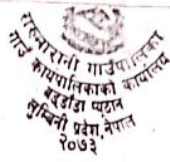 सरुमारानी गाउँपालिका
गाउँ कार्यपालिकाको कार्यालय
बहुडाँडा प्यूठान
लुम्बिनी प्रदेश, नेपाल
२०७३